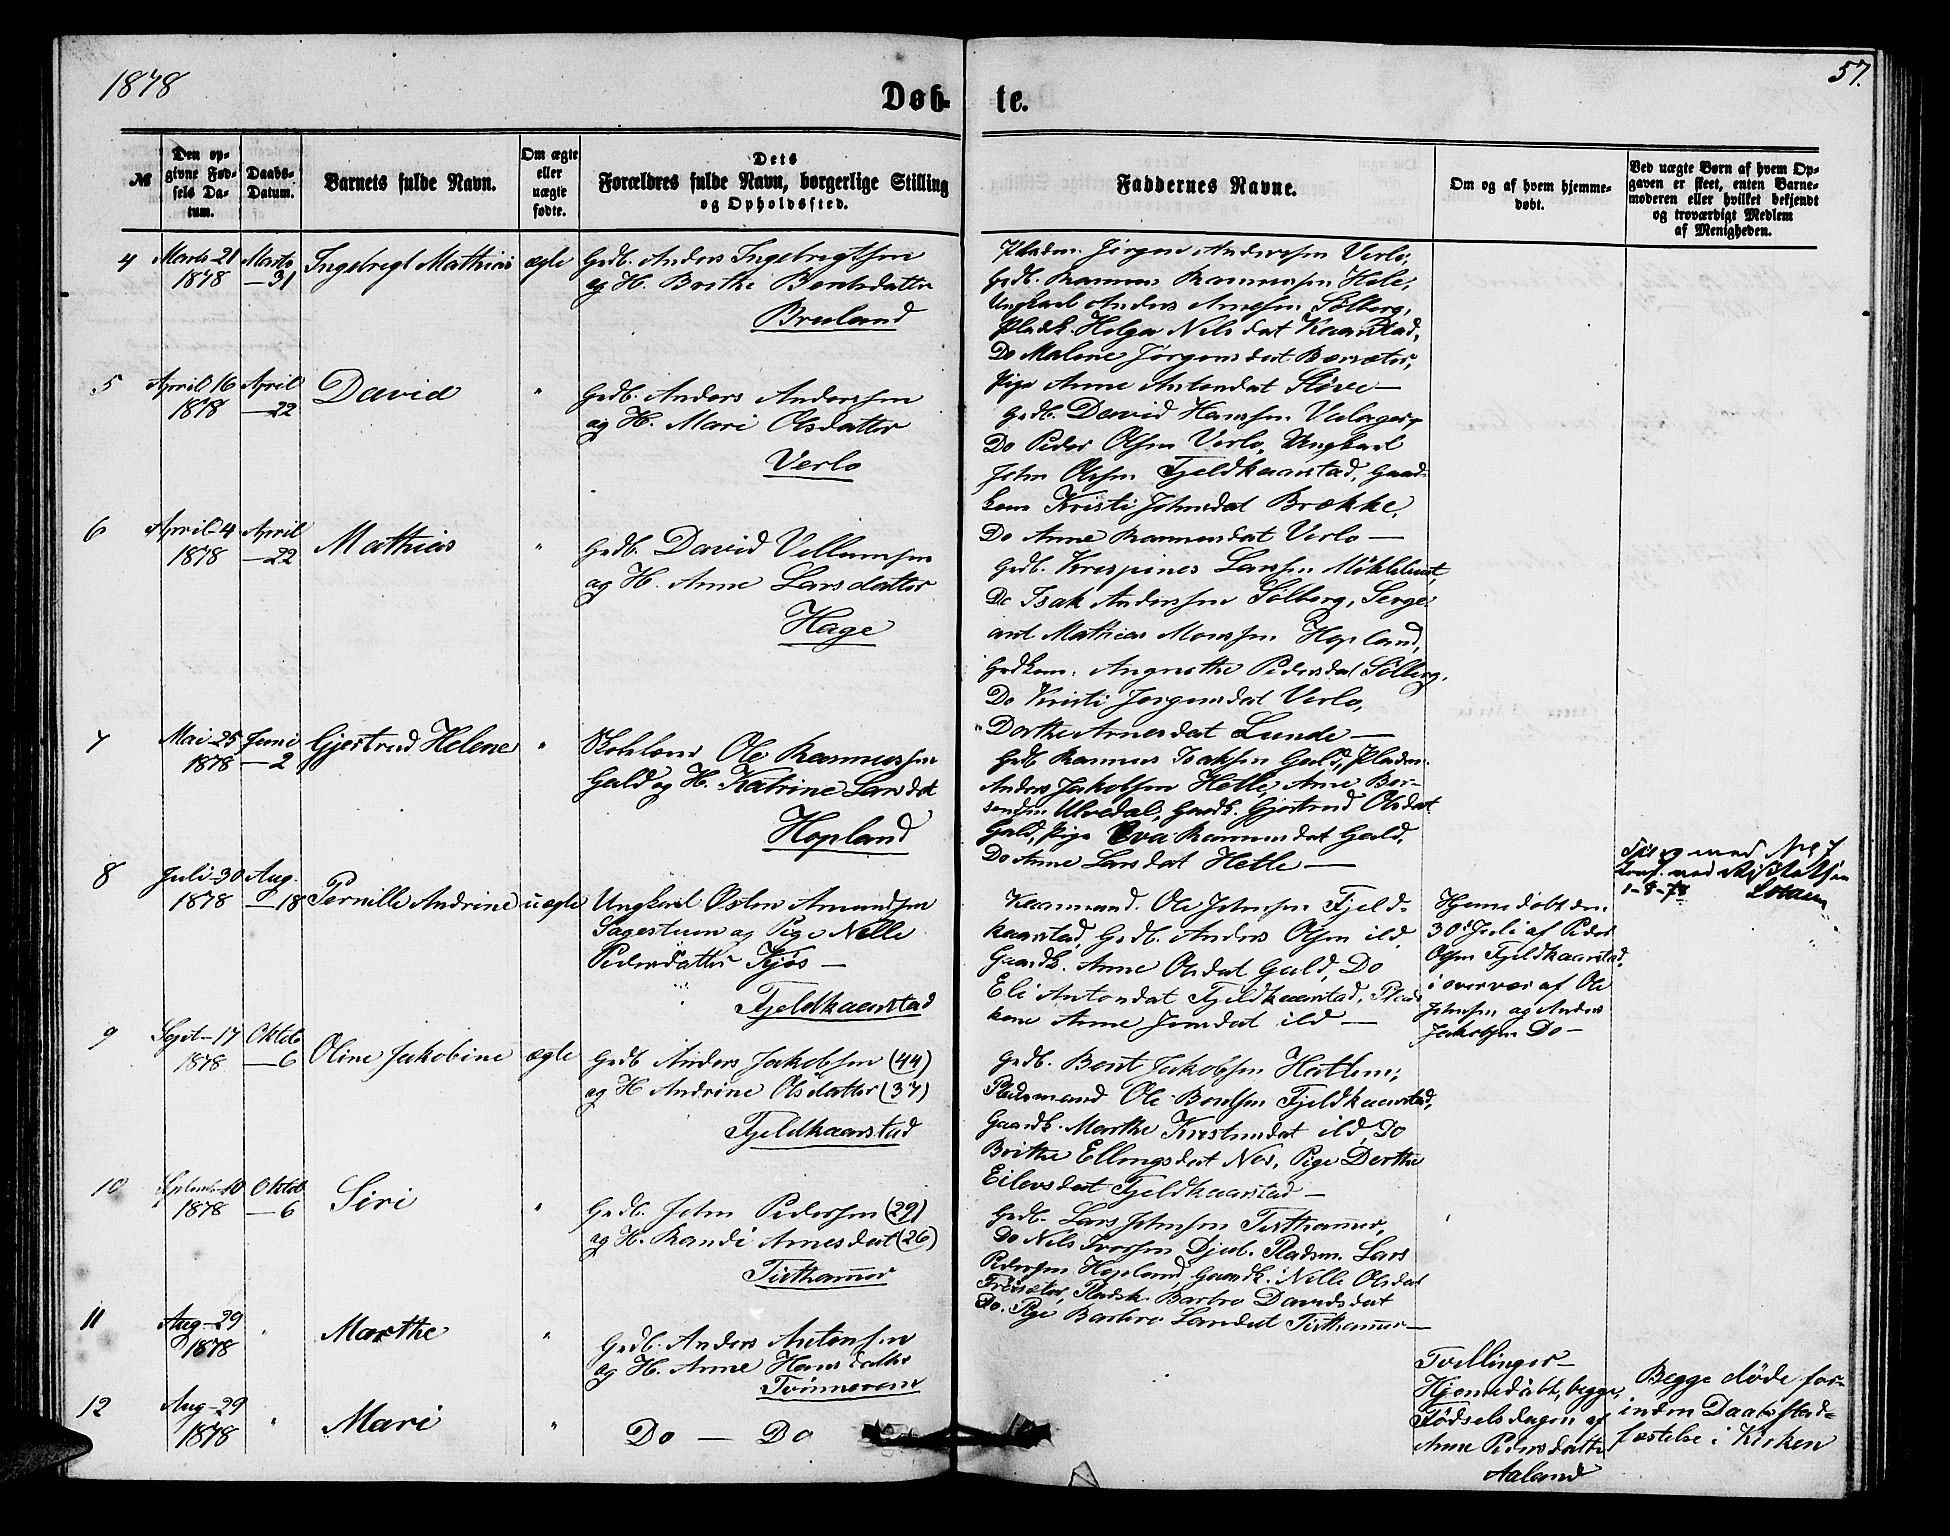 1878
57.
Døb-
te.
№
Den op-
givne Fød-
sels Da-
tum.
Daabs-
Datum.
Barnets fulde Navn.
Om ægte
eller
uægte
fødte.
Dets
Forældres fulde Navn, borgerlige Stilling
og Opholdssted.
Faddernes Navne.
Om og af hvem hjemme-
døbt.
Ved uægte Børn af hvem Op-
gaven er skeet, enten Barne-
moderen eller hvilket bekjendt
og troværdigt Medlem
af Menigheden.
4
Marts 21
1878
Marts
— 31
Ingebregt Mathias
ægte
Grdb. Anders Ingebregtsen
og H. Berthe Bentsdatter
Bruland
Pladsm. Jørgen Anderssen Verlo,
Grdb. Rasmus Rasmussen Hole,
Ungkarl Anders Arnesen Solberg,
Pladsk. Helga Nilsdat Kaarstad,
Do Malene Jørgensdat Børsæter,
Pige Anne Antondat Støve —
5
April 16
1878
April
— 22
David
"
Grdb. Anders Anderssen
og H. Mari Olsdatter
Verlo
Grdb. David Hanssen
Do Peder Olsen Verlo, Ungkarl
John Olsen Fjeldkaarstad, Gaard-
kone Kristi Johnsdat Brække,
Do Anne Rasmusdat Verlo —
6
April 4
1878
April
— 22
Mathias
"
Grdb. David Villumsen
og H. Anne Larsdatter
Hage
Grdb. Krespines Larssen
Do Isak Anderssen Solberg, Serge
ant Mathias Monssen Hopland,
Grdkon. Angnethe Pedersdat Solberg,
Do Kristi Jørgensdat Verlo,
" Dorthe Arnesdat Lunde —
7
Mai 25
1878
Juni
— 2
Gjertrud Helene
"
Ole Rasmussen
Gald og H. Katrine Larsdat
Hopland
Grdb Rasmus Isaksen Gald, Pladsm.
Anders Jakobsen Hetle, Arne Ber-
Ulvedal, Gaardk. Gjertrud Olsdat
Gald, Pige Eva Rasmusdat Gald,
Do Anne Larsdat Hetle —
8
Juli 30
1878
Aug.
— 18
Pernille Andrine
uægte
Ungkarl Østen Amundsen
Sagestuen og Pige Nelle
Pedersdatter Kjøs —
Fjeldkaarstad
Kaarmand. Ole Johnsen Fjeld-
kaarstad, Grdb. Anders Olsen ild,
Gaardk. Anne Olsdat Gald, Do
Eli Antondat Fjeldkaarstad, Plads
kone Anne Jonsdat ild —
Hjemedøbt den
30 Juli af Peder
Olsen Fjeldkaarstad,
i overvær af Ole
Johnsen og Anders
Jakobsen Do —
1-8-78
9
Sept—17
1878
Oktob
— 6
Oline Jakobine
ægte
Grdb Anders Jakobsen (44)
og H Andrine Olsdatter (37)
Fjeldkaarstad
Grdb. Bent Jakobsen Hatlem,
Pladsmand Ole Bentsen Fjeldkaarstad,
Gaardk. Marthe Kristensdat ild, Do
Brithe Ellingsdat Nes, Pige Derthe
Eilevsdat Fjeldkaarstad —
10
1878
Oktob
— 6
Siri
"
Grdb. John Pedersen (29)
og H. Randi Arnesdat (26)
Tefthammer
Grdb. Lars Johnsen Tefthammer,
Do Nils Iverssen Djub. Pladsm. Lars
Pedersen Hopland, Gaardk. Nille Olsdat
Pladsk. Barbro Davidsdat
Do. Pige Barbro Larsdat Tefthammer —
11
Aug—29
1878
"
Marthe
"
Grdb. Anders Antonsen
og H. Anne Hansdatter
12
Aug—29
1878
"
Mari
"
Do — Do
Tvillinger—
Hjemmedøbt, begge,
Fødselsdagen af
Anne Pedersdatter
Aaland
Begge døde for-
inden Daabsstad-
fæstelse i Kirken